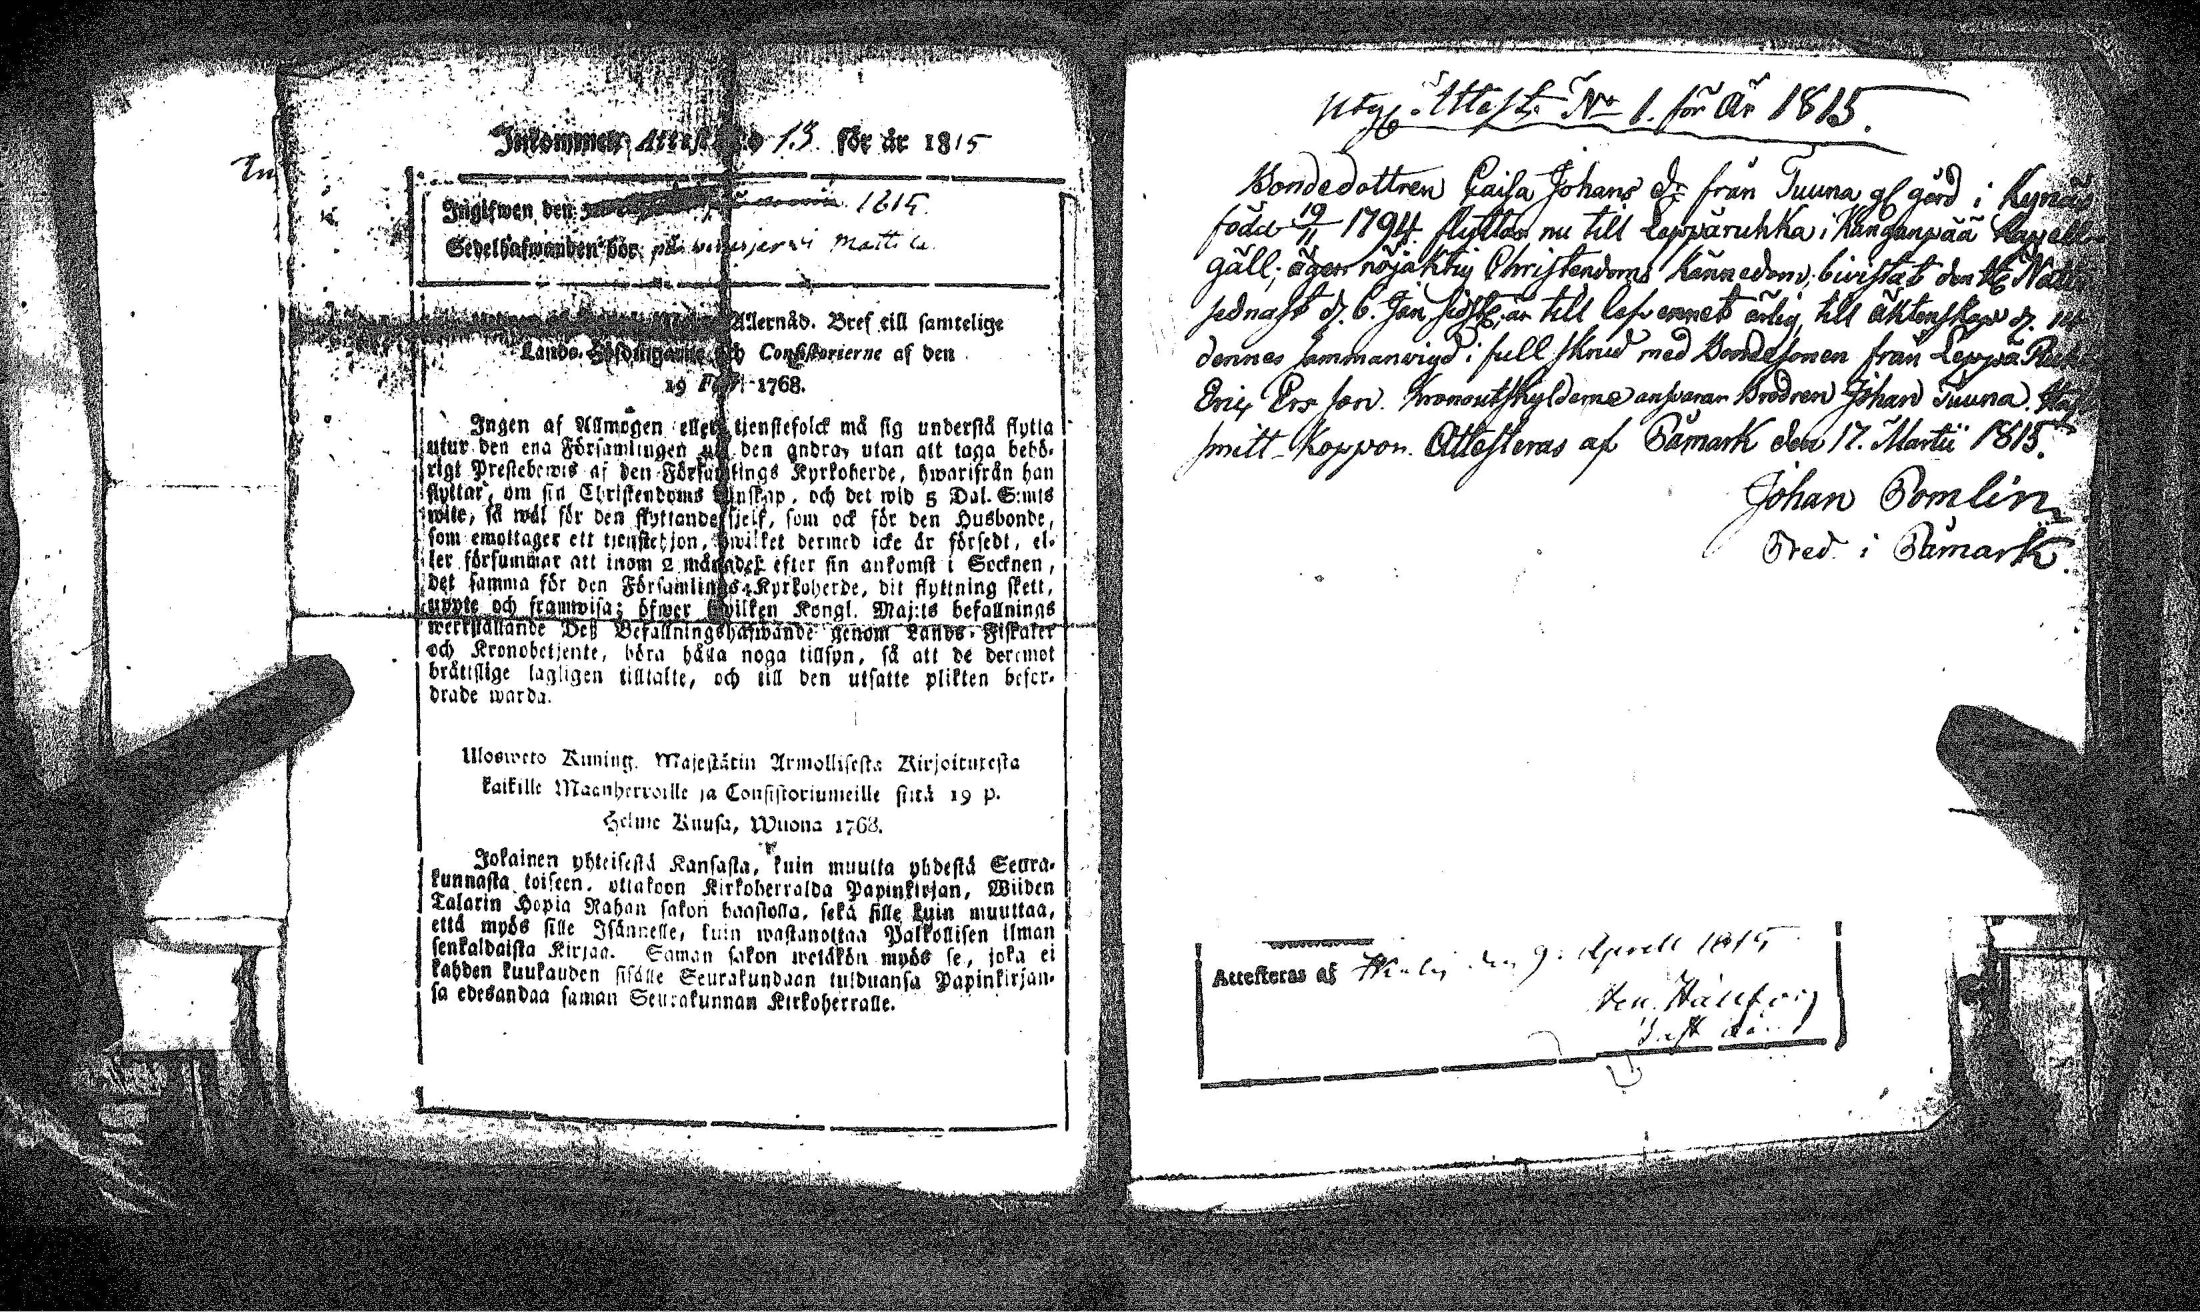 In
Inkommen Attest No 13. för år 1815
Ingifwen den 1815.
Sedelhafwanden bör på
Allernåd. Bref till samtelige
Lands-Höfdingarne och Consistorierne af den
19 Febr. 1768.
Ingen af Allmogen eller tjenstefolck må sig understå flytta
utur den ena Församlingen uti den andra, utan att taga behö-
rigt Prestebewis af den Församlings Kyrkoherde, hwarifrån han
flyttar, om sin Christendoms kunskap, och det wid 5 Dal. S:mts
wite, så wäl för den flyttande sjelf, som ock för den Husbonde,
som emottager ett tjenstehjon, hwilket dermed icke är försedt, el-
ler försummar att inom 2 månader efter sin ankomst i Socknen,
det samma för den Församlings-Kyrkoherde, dit flyttning skett,
uppte och framwisa; öfwer hwilken Kongl. Maj:ts befallnings
werkställande Deß Befallningshafwande genom Lands-Fiskaler
och Kronobetjente, böra hålla noga tillsyn, så att de deremot
bråttslige lagligen tilltalte, och till den utsatte plikten befor-
drade warda.
Ulosweto Kuning. Majestätin Armollisesta Kirjoituxesta
kaikille Maanherroille ja Consistoriumeille siitä 19 p.
Helme Kuusa, Wuona 1768.
Jokainen yhteisestä Kansasta, kuin muutta yhdestä Seura-
kunnasta toiseen, ottakoon Kirkoherralda Papinkirjan, Wiiden
Talarin Hopia Rahan sakon haastolla, sekä sille kuin muuttaa,
että myös sille Isännelle, kuin wastanottaa Palkollisen ilman
senkaldaista Kirjaa. Saman sakon wetäkön myös se, joka ei
kahden kuukauden sisälle Seurakundaan tulduansa Papinkirjan-
sa edesandaa saman Seurakunnan Kirkoherralle.
Utg. Attest. No 1. för År 1815.
Bondedottren Caisa Johans dr från Tuuna gl gård i Kynäs
född 19/11 1794. flyttar nu till Leppäruhka i Kangанpää Kapell-
gäll; äger nöjaktig Christendoms kännedom, bivistat den H. Natt
sednast d. 6. Jan. sidstl. år till lefvernet ärlig, till äktenskap d. 14
dennes sammanvigd i full skrud med Bondesonen från Leppä
Eric Ers son. Kronoutskylderne ansvarar Brodren Johan Tuuna. Haft
smitt-koppor. Attesteras af Påmark den 17. Martii 1815.
Johan Pomlin
Pred. i Påmark.
Attesteras af den 9. April 1815